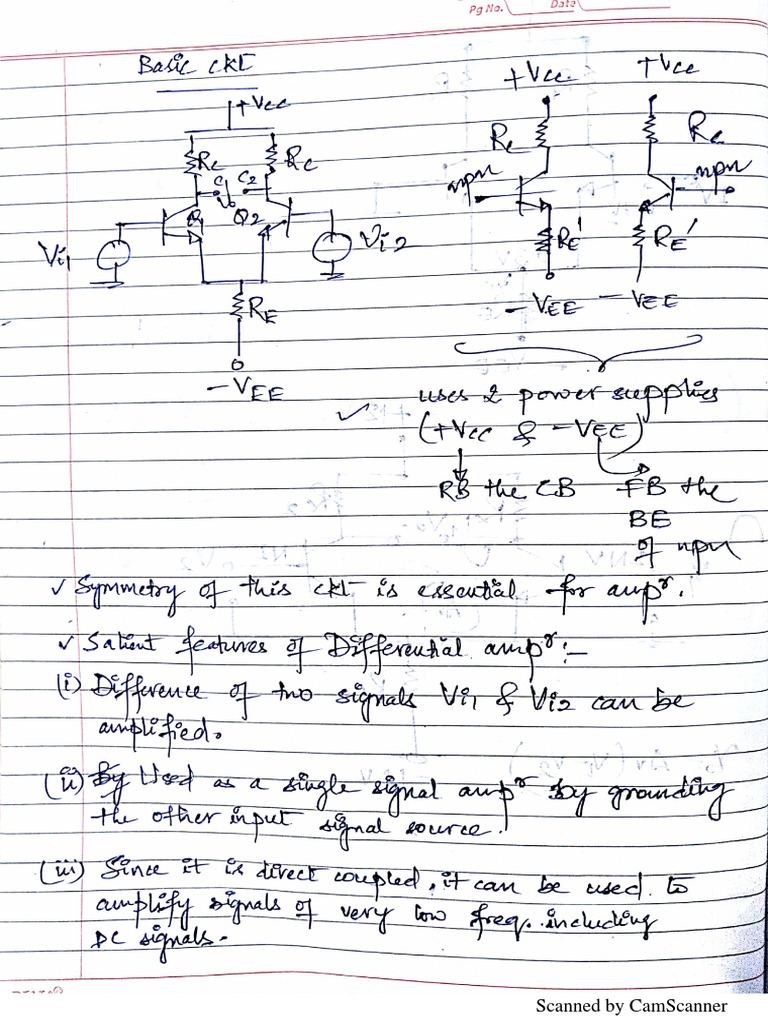 Pg No. Date
Basic ckt
+Vcc
Rc Rc
C1 C2
Vo
Q1 Q2
Vi1 Vi2
RE
-VEE
+Vcc +Vcc
Rc Rc
npn npn
RE' RE'
-VEE -VEE
uses 2 power supplies
(+Vcc & -VEE)
RB the CB FB the
BE
of npn
✓ Symmetry of this ckt is essential for ampr.
✓ Salient features of Differential ampr:-
(i) Difference of two signals Vi1 & Vi2 can be
amplified.
(ii) By Used as a single signal ampr by grounding
the other input signal source.
(iii) Since it is direct coupled, it can be used to
amplify signals of very low freq. including
DC signals.
Scanned by CamScanner